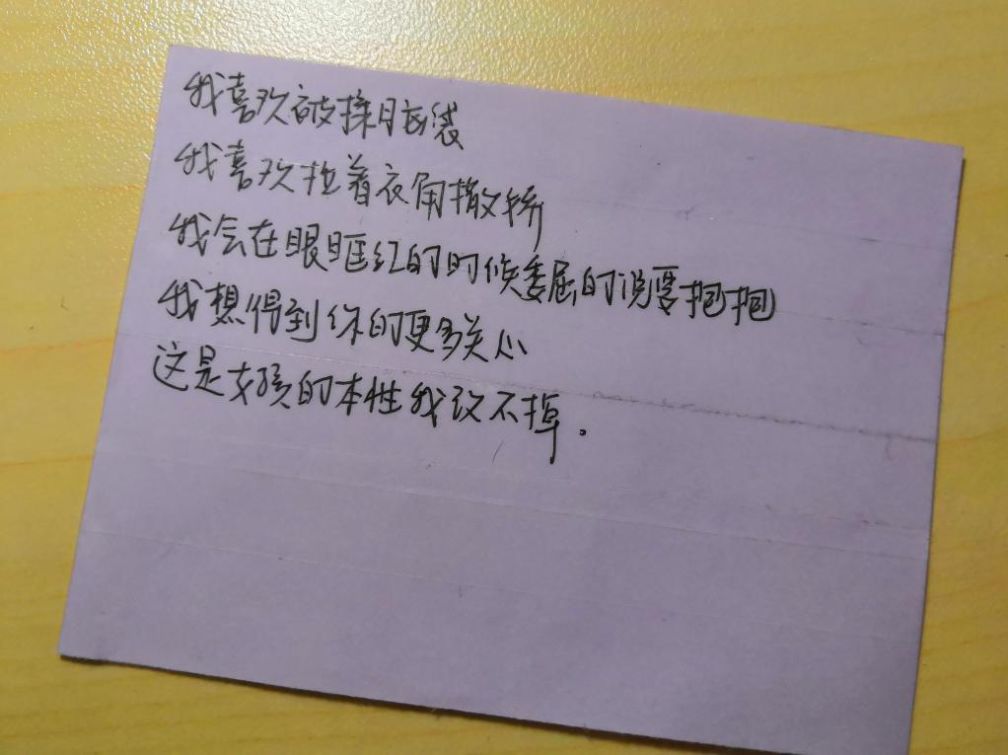 我喜欢被揉脑袋
我喜欢拉着衣角撒娇
我会在眼眶红的时候委屈的说要抱抱
我想得到你的更多关心
这是女孩的本性我改不掉。